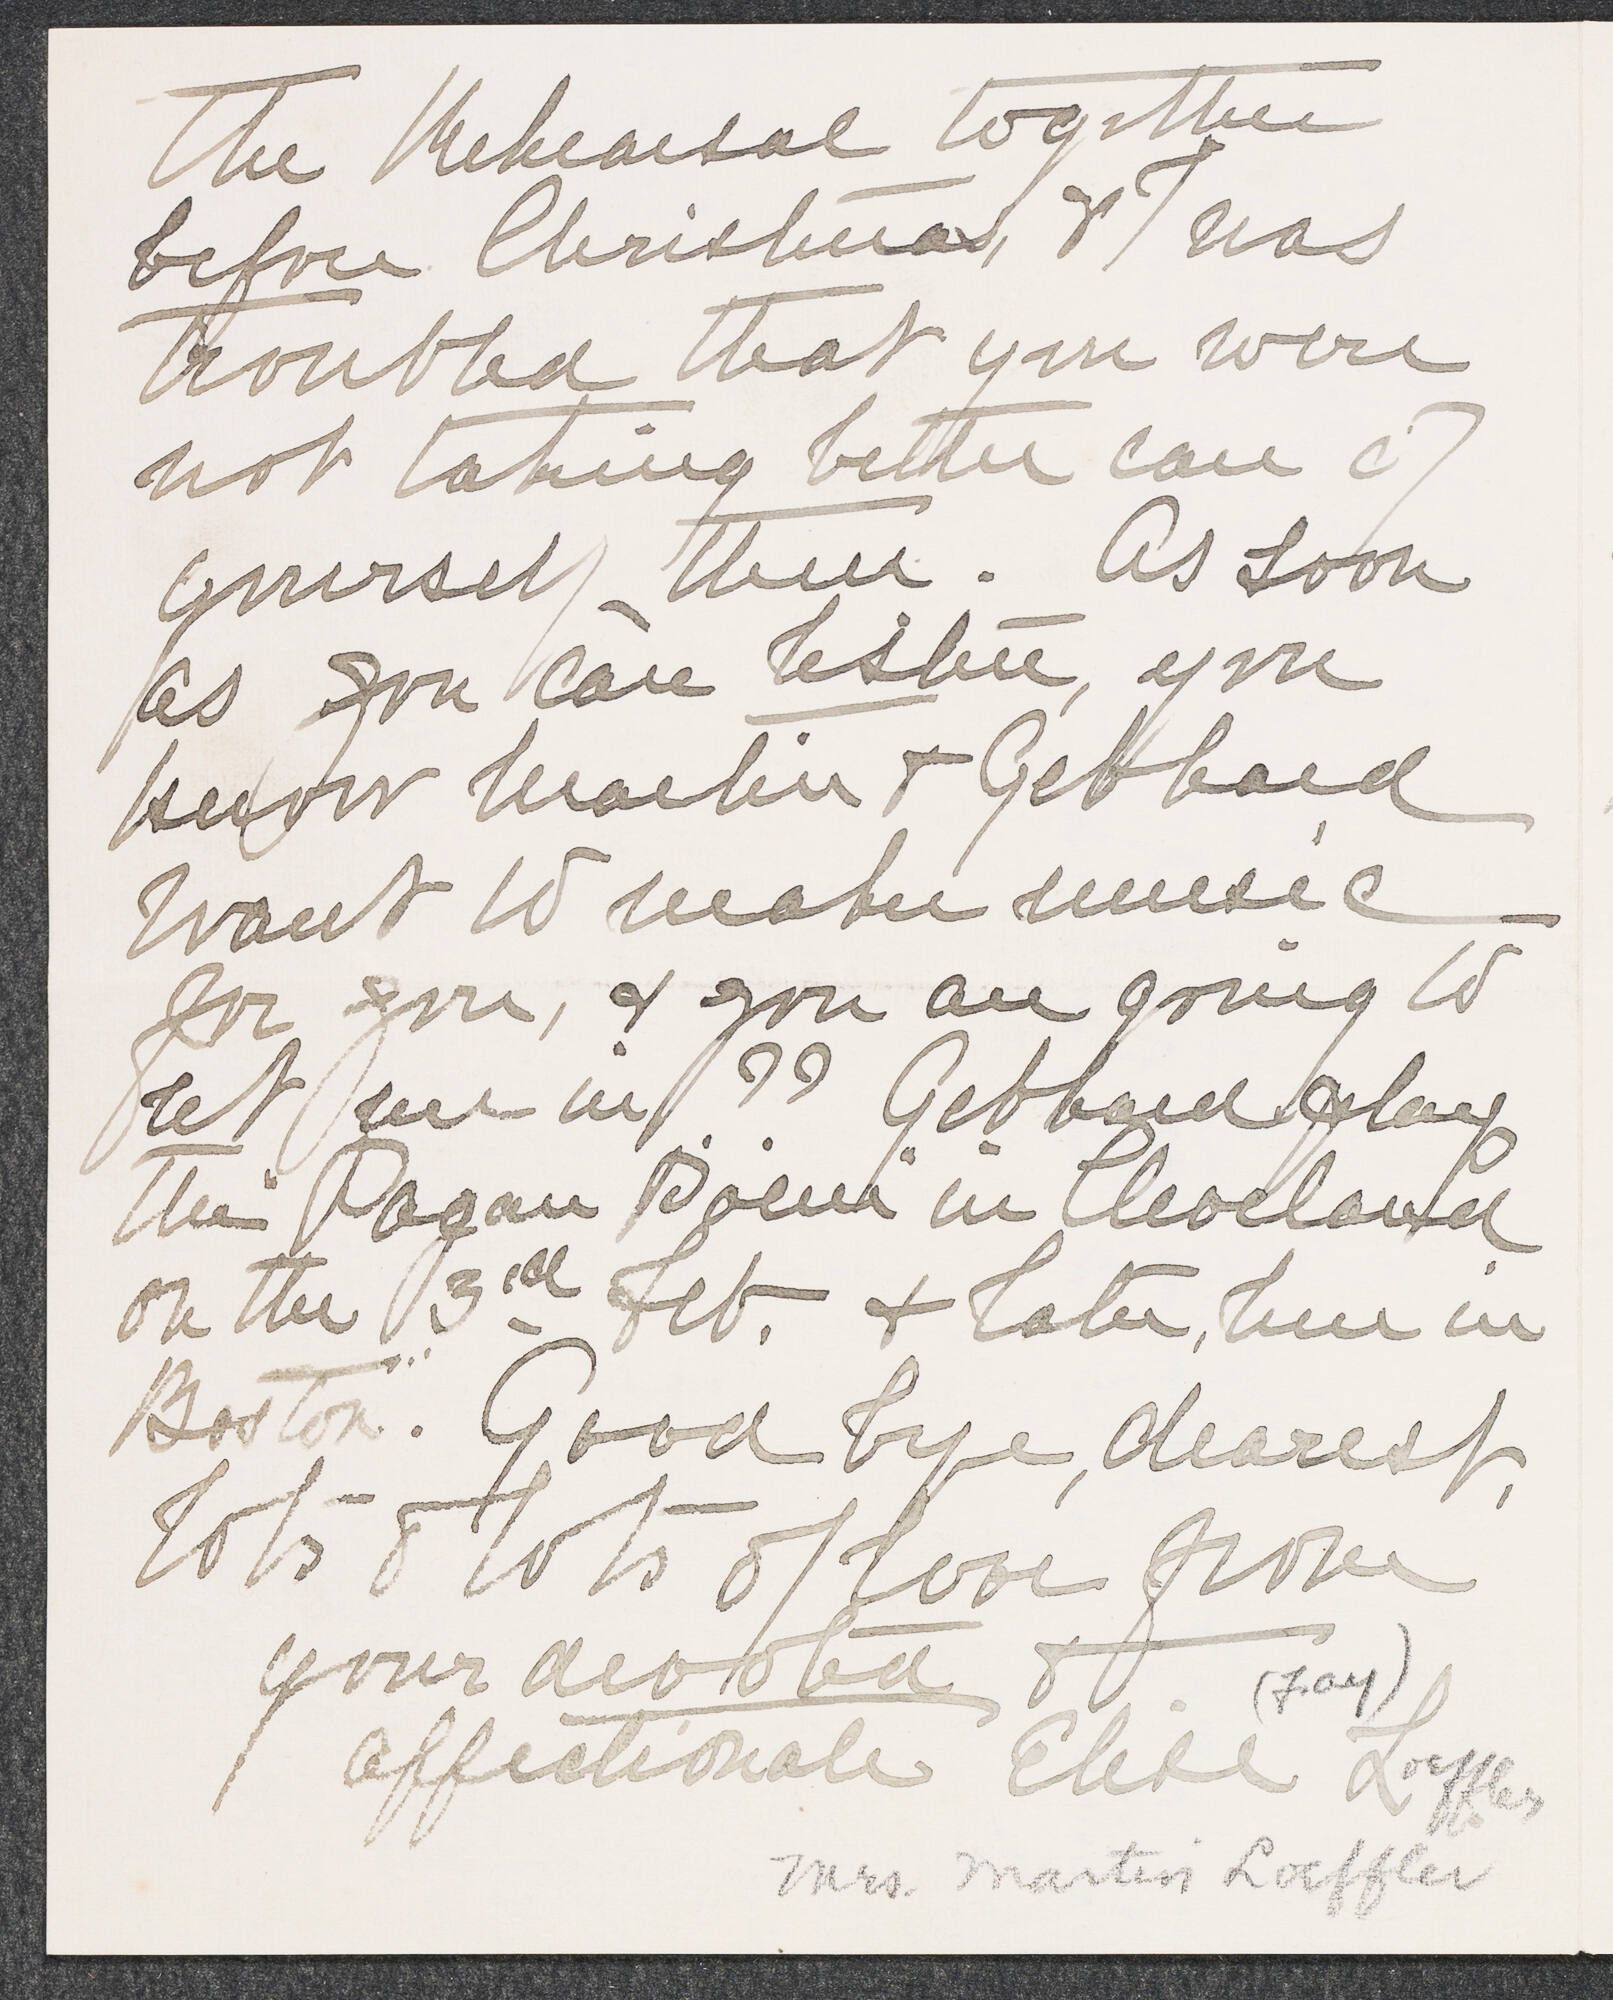 the Rehearsal together
before Christmas, & I was
troubled that you were
not taking better care of
yourself then. As soon
as you can listen, you
know Martin & Gebhard
want to make music
for you, & you are going to
let me in?? Gebhard play
the "Pagan Poem" in Cleveland
on the 3rd Feb. & later, here in
Boston. Good bye, dearest,
lots & lots of love from
your devoted &
(Fay)
affectionate Elise Loeffler
Mrs. Martin Loeffler